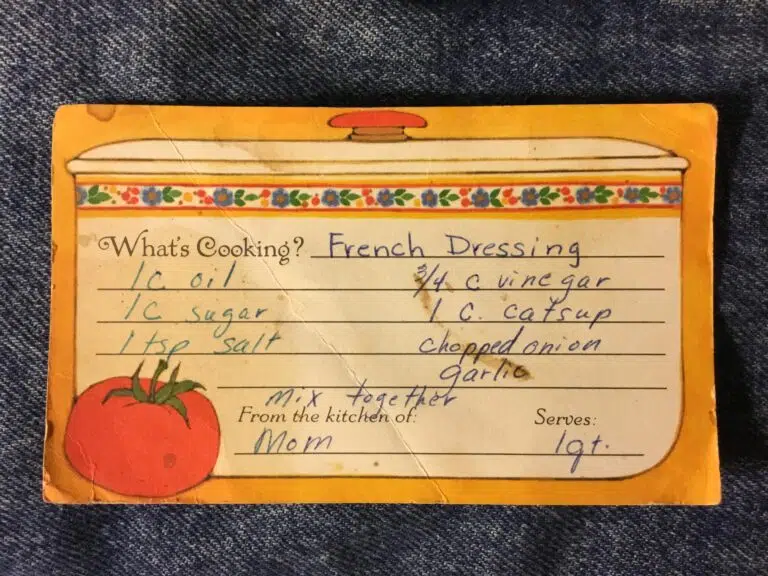 What's Cooking? French Dressing
1c oil 3/4 c vinegar
1c sugar 1 c. catsup
1 tsp salt chopped onion
garlic
mix together
From the kitchen of: Serves:
Mom 1qt.